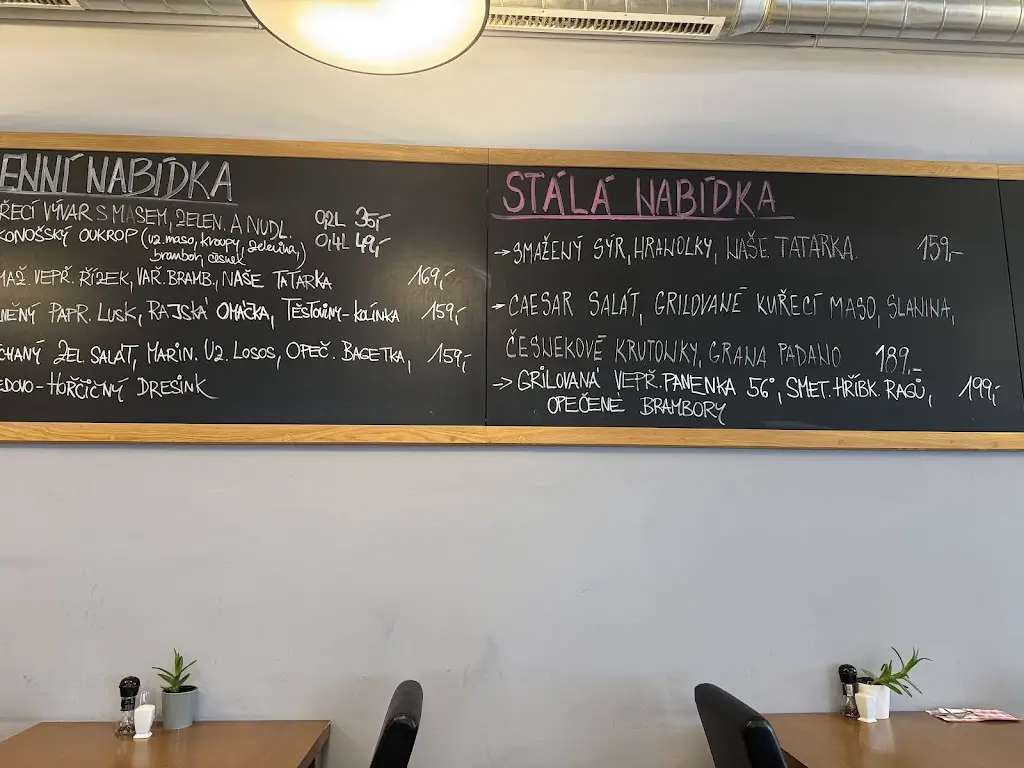 ENNÍ NABÍDKA
ŘECÍ VÝVAR S MASEM, ZELEN. A NUDL. 0,2L 35,-
KONOŠSKÝ OUKROP (UZ. MASO, KROUPY, ZELENINA, 0,4L 49,-
BRAMBOR, ČESNEK)
MAŽ. VEPŘ. ŘÍZEK, VAŘ. BRAMB., NAŠE TATARKA 169,-
NĚNÝ PAPR. LUSK, RAJSKÁ OMÁČKA, TĚSTOVINY-KOLÍNKA 159,-
CHANÝ ZEL SALÁT, MARIN. UZ. LOSOS, OPEČ. BAGETKA, 159,-
EDOVO-HOŘČIČNÝ DRESINK
STÁLÁ NABÍDKA
→ SMAŽENÝ SÝR, HRANOLKY, NAŠE TATARKA. 159,-
→ CAESAR SALÁT, GRILOVANÉ KUŘECÍ MASO, SLANINA,
ČESNEKOVÉ KRUTONKY, GRANA PADANO 189,-
→ GRILOVANÁ VEPŘ. PANENKA 56°, SMET. HŘÍBK. RAGŮ, 199,-
OPEČENÉ BRAMBORY